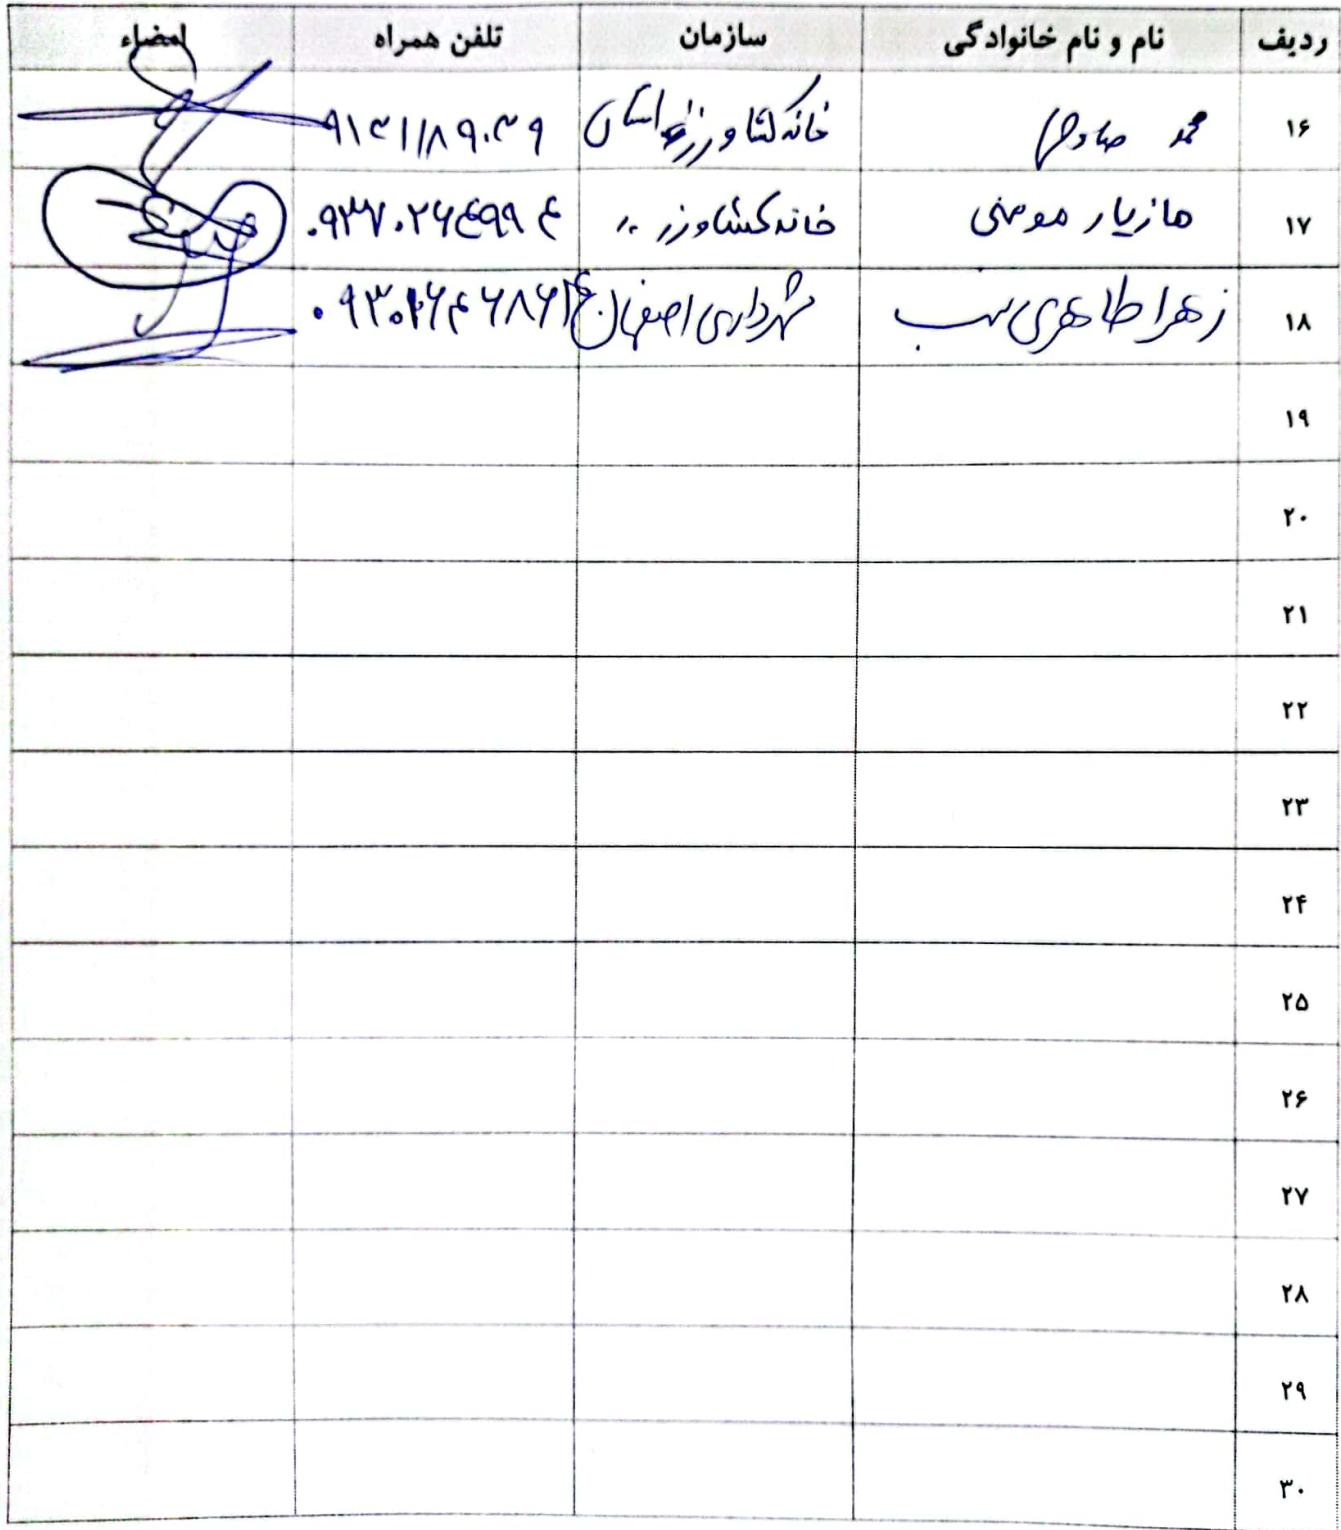 ردیف نام و نام خانوادگی سازمان تلفن همراه امضاء
۱۶ محمد خانه کشاورز استان
۱۷ مازیار مومنی خانه کشاورز ״ ۰۹۳۷۰۲۶۴۹۹۴
۱۸ زهرا طاهری نسب شهرداری اصفهان
۱۹
۲۰
۲۱
۲۲
۲۳
۲۴
۲۵
۲۶
۲۷
۲۸
۲۹
۳۰